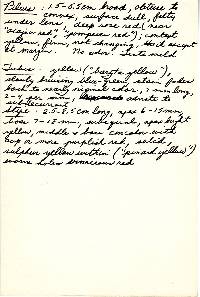 Pileus: 1.5-6.5cm broad, obtuse to
convex, surface dull, felty
under lens, deep rose red (near
"acajou red", "pompeian red"); context
yellow, firm, not changing, thick except
at margin. No odor. Taste mild
Tubes: yellow ("baryta yellow"),
slowly bruising blue-green, stain fades
back to nearly original color, 2 mm long,
2-4 per mm, adnate to
subdecurrent.
Stipe: 2.5-8.5 cm long, apex 6-15mm,
base 7-18 mm, subequal, apex bright
yellow, middle & base concolor with
cap or more purplish red, solid,
sulphur yellow within ("pinard yellow")
worm holes vinaceous red